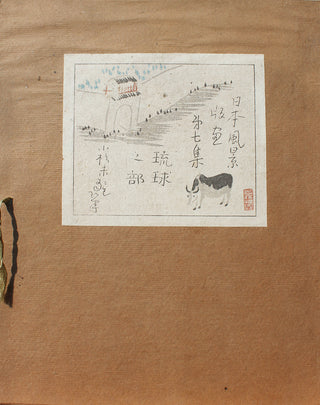 日本風景
版画
第七集
琉球
之部
小杉未醒筆